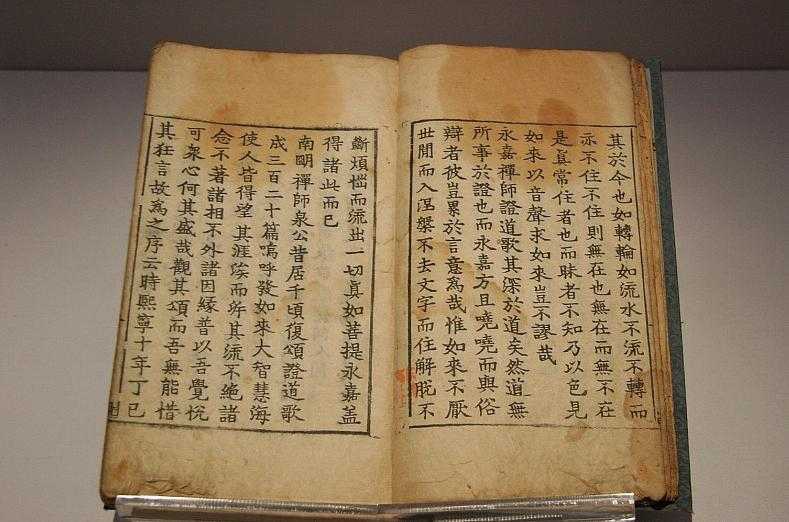 其於今也如轉輪如流水不流不轉而
亦不住不住則無在也無在而無不在
是眞常住者也而昧者不知乃以色見
如來以音聲求如來豈不謬哉
永嘉禪師證道歌其深於道矣然道無
所事於證也而永嘉方且嘵嘵而與俗
辯者彼豈累於言意爲哉惟如來不厭
世閒而入涅槃不去文字而住解脫不
斷煩惱而流出一切眞如菩提永嘉盖
得諸此而已
南明禪師泉公昔居千頃復頌證道歌
成三百二十篇嗚呼發如來大智慧海
使人皆得望其涯涘而㳂其流不絕諸
念不著諸相不外諸因緣普以吾覺悅
可衆心何其盛哉觀其頌而吾無能惜
其狂言故爲之序云時熙寧十年丁巳